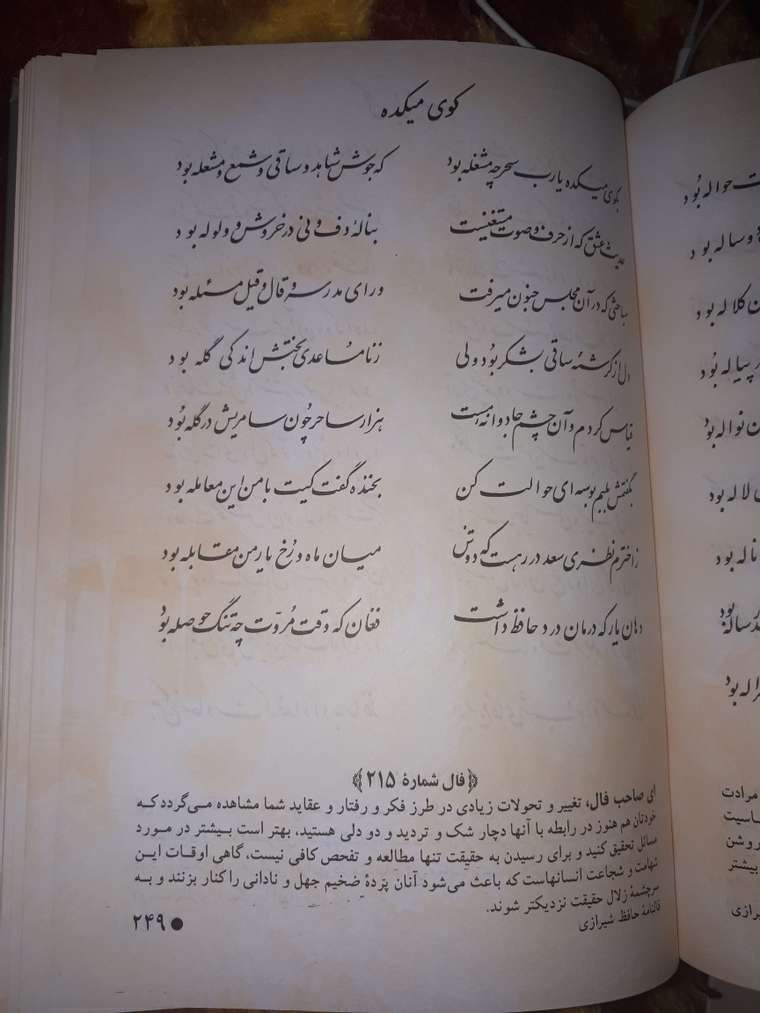 کوی میکده
بکوی میکده یارب سحر چه مشغله بود که جوش شاهد و ساقی و شمع و مشعله بود
حدیث عشق که از حرف و صوت مستغنیست بنالهٔ دف و نی در خروش و ولوله بود
مباحثی که در آن مجلس جنون میرفت ورای مدرسه و قال و قیل مسئله بود
دل از کرشمهٔ ساقی بشکر بود ولی ز نامساعدی بختش اندکی گله بود
قیاس کردم و آن چشم جادوانه مست هزار ساحر چون سامریش در گله بود
بگفتمش بلبم بوسه ای حوالت کن بخنده گفت کیت با من این معامله بود
ز اخترم نظری سعد در رهست که دوش میان ماه و رخ یار من مقابله بود
دهان یار که درمان درد حافظ داشت فغان که وقت مروّت چه تنگ حوصله بود
﴿فال شمارهٔ ۲۱۵﴾
ای صاحب فال، تغییر و تحولات زیادی در طرز فکر و رفتار و عقاید شما مشاهده می‌گردد که
خودتان هم هنوز در رابطه با آنها دچار شک و تردید و دو دلی هستید، بهتر است بیشتر در مورد
مسائل تحقیق کنید و برای رسیدن به حقیقت تنها مطالعه و تفحص کافی نیست، گاهی اوقات این
شهامت و شجاعت انسانهاست که باعث می‌شود آنان پردهٔ ضخیم جهل و نادانی را کنار بزنند و به
سرچشمهٔ زلال حقیقت نزدیکتر شوند.
فالنامهٔ حافظ شیرازی
۲۴۹●
ت حواله بود
وساله بود
ن کلاله بود
ر پیاله بود
ن نواله بود
لاله بود
ناله بود
ر بود
دساله
اله بود
مرادت
اسیت
روشن
بیشتر
رازی